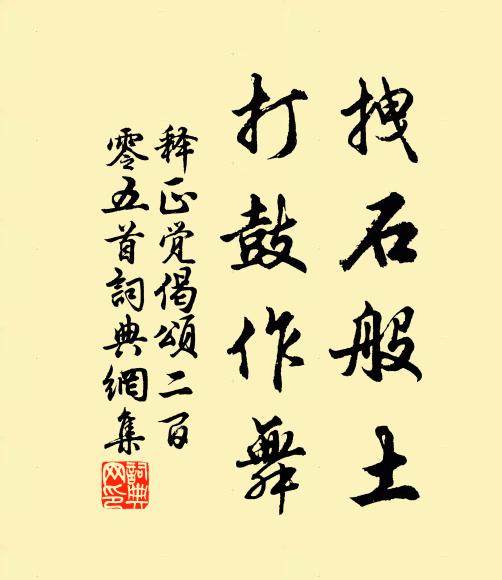 拽石般土
打鼓作舞
释正觉偈頌二百
零五首詞典網集
詞典網印